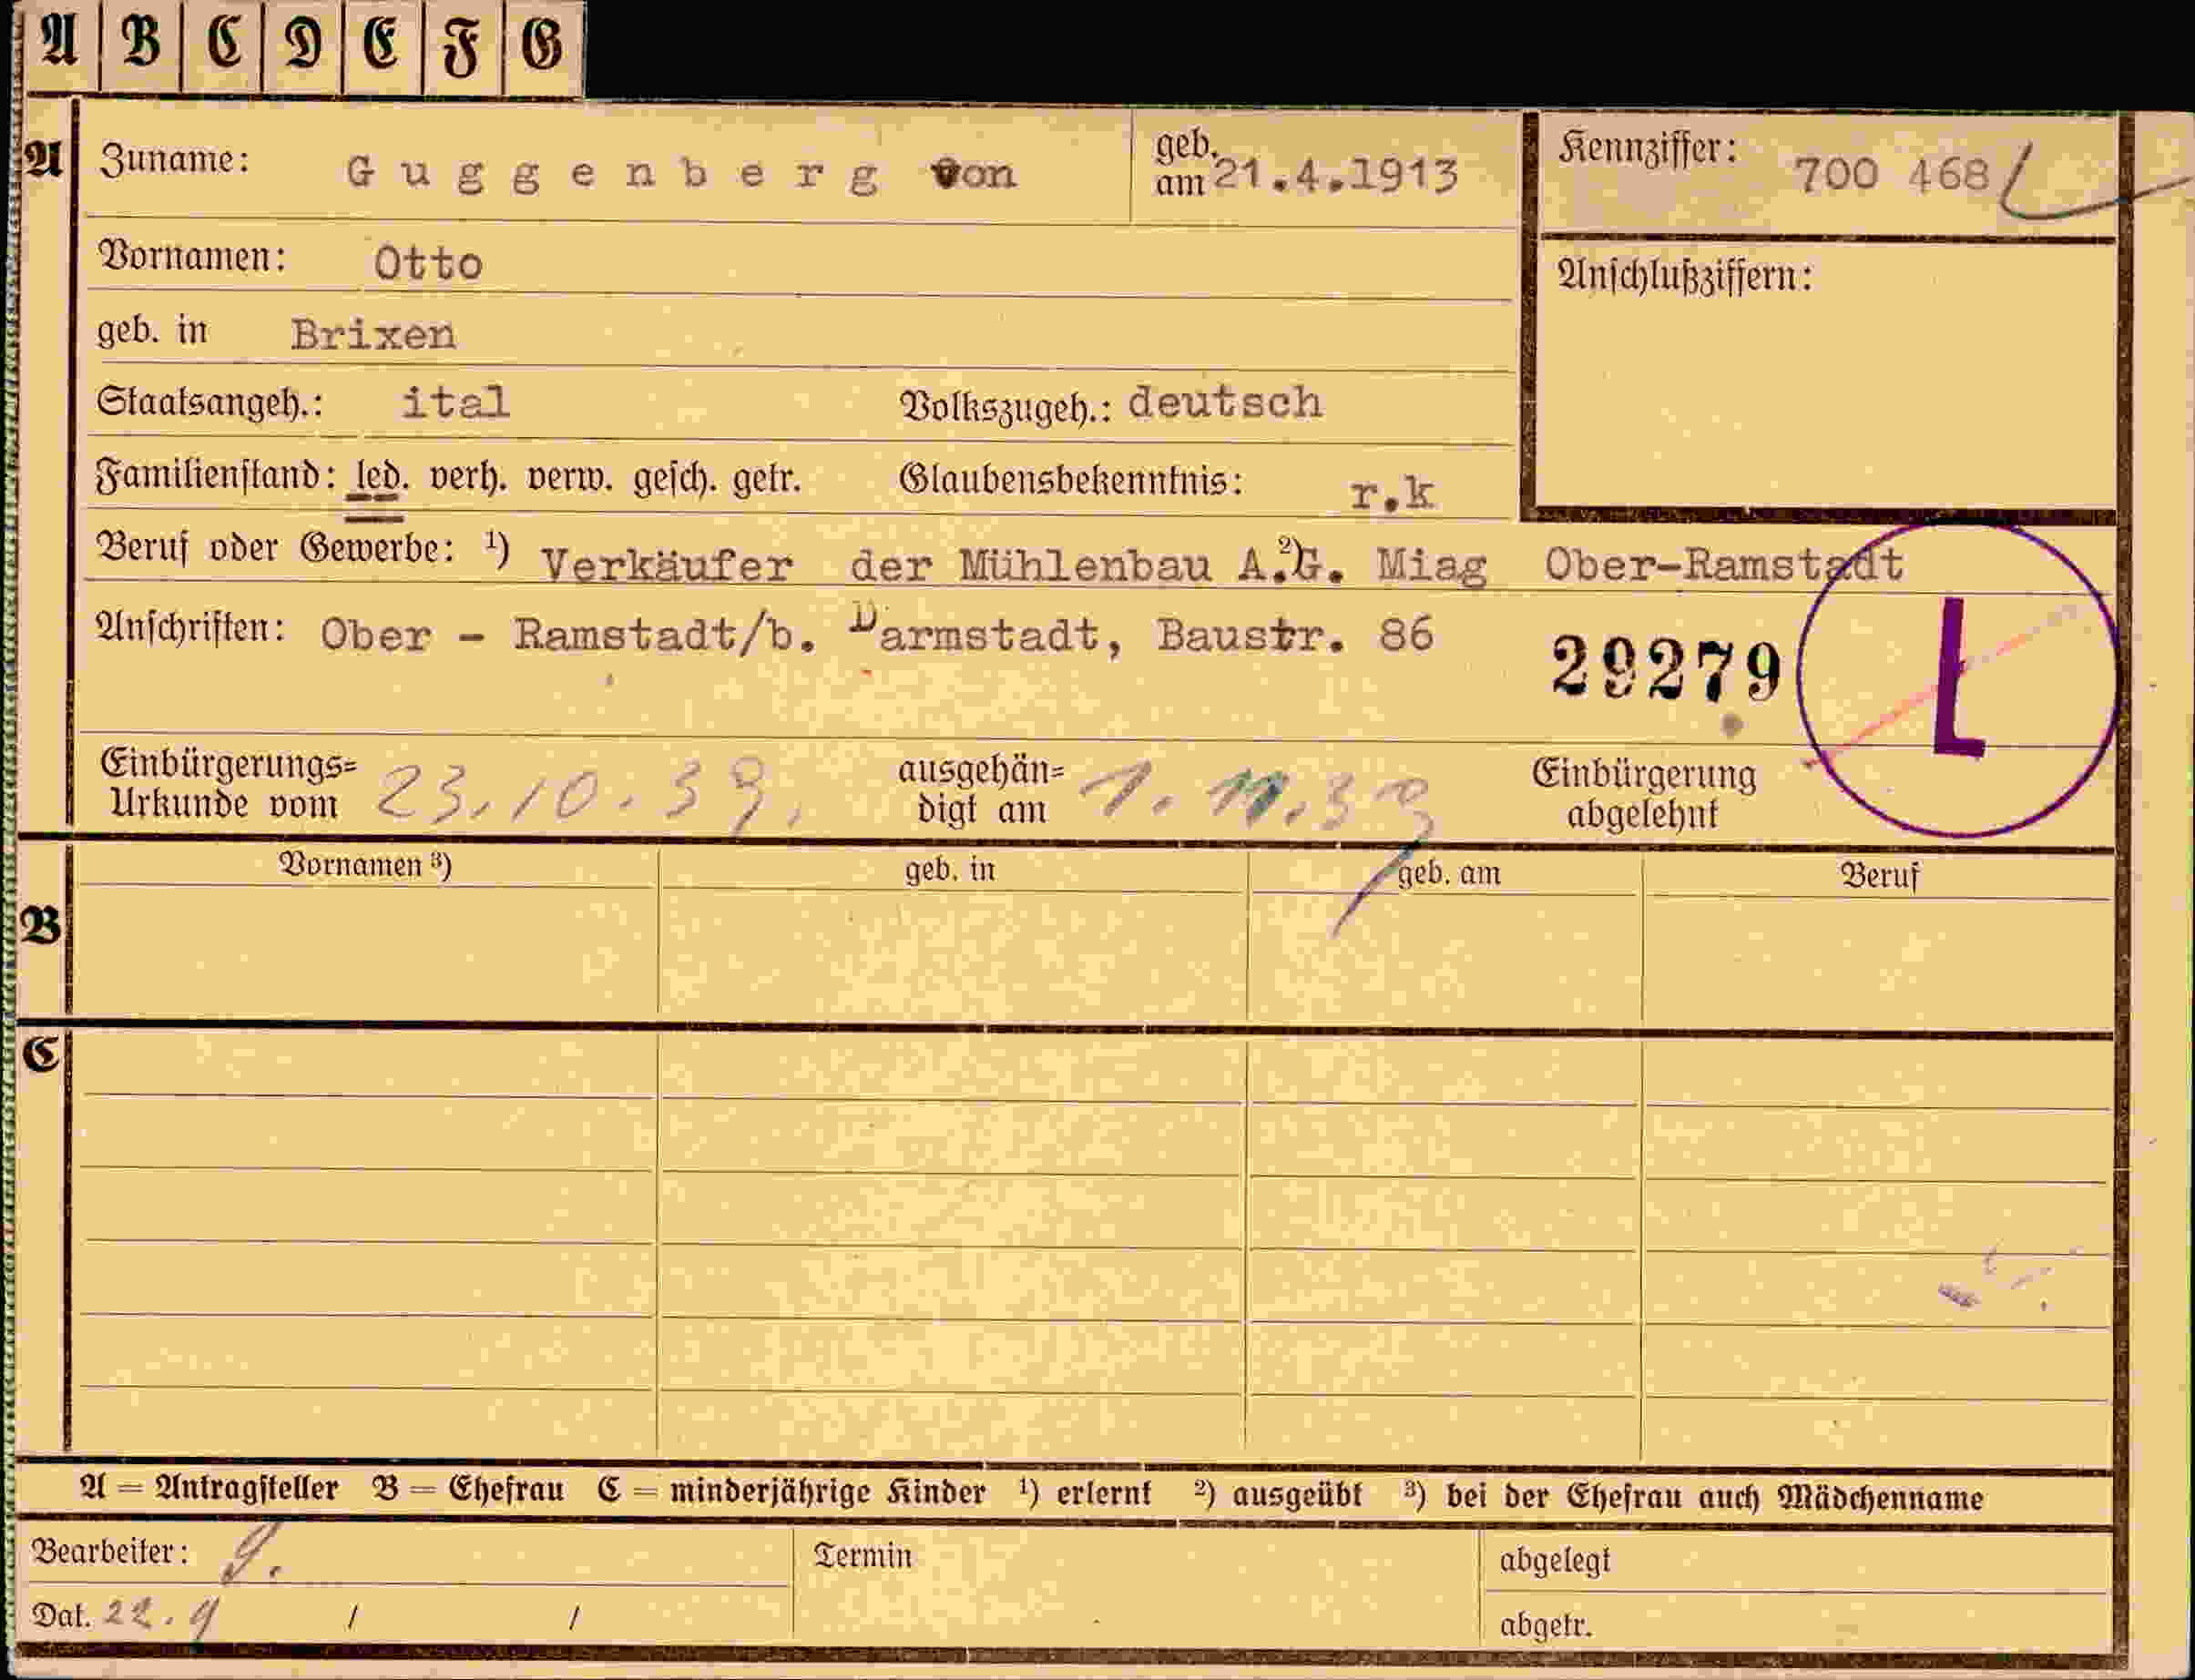 A B C D E F G
A Zuname: Guggenberg von geb. am 21.4.1913 Kennziffer: 700 468
Vornamen: Otto Anschlußziffern:
geb. in Brixen
Staatsangeh.: ital Volkszugeh.: deutsch
Familienstand: led. verh. verw. gesch. getr. Glaubensbekenntnis: r.k
Beruf oder Gewerbe: ¹) Verkäufer der Mühlenbau A.G. ²) Miag Ober-Ramstadt
Anschriften: Ober - Ramstadt/b. Darmstadt, Baustr. 86 29279 L
Einbürgerungs= ausgehän= Einbürgerung
Urkunde vom 23.10.39. digt am 1.11.39 abgelehnt
Vornamen ³) geb. in geb. am Beruf
B
C
A = Antragsteller B = Ehefrau C = minderjährige Kinder ¹) erlernt ²) ausgeübt ³) bei der Ehefrau auch Mädchenname
Bearbeiter: Termin abgelegt
Dat. 22.9 / / abgetr.